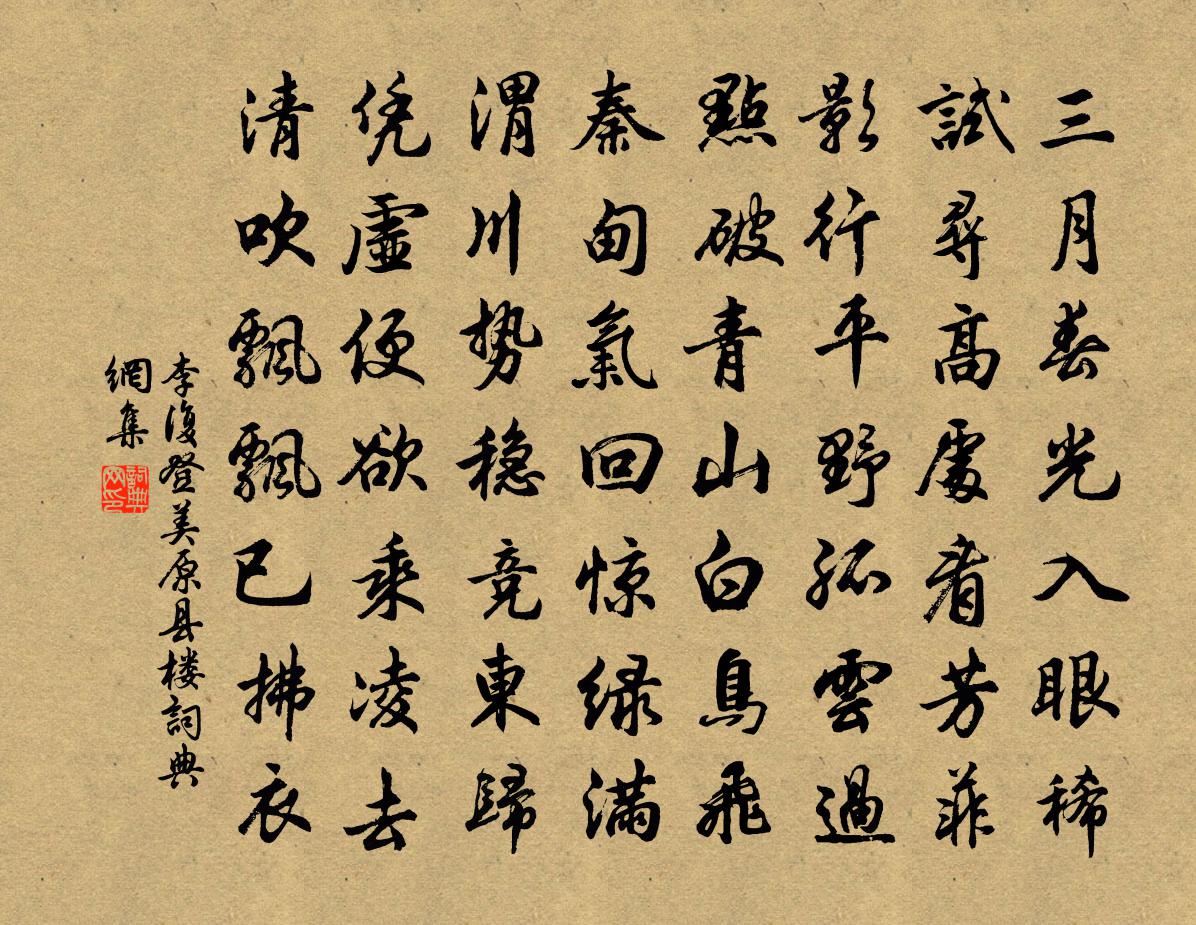 三月春光入眼稀
試尋高處看芳菲
影行平野孤雲過
點破青山白鳥飛
秦甸氣回惊绿滿
渭川势稳竞東歸
凭虛便欲乘凌去
清吹飄飄已拂衣
李復登美原县楼詞典
網集
詞典网印